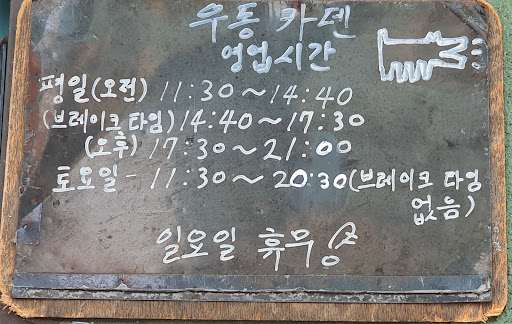 우동 카덴
영업시간
평일(오전) 11:30~14:40
(브레이크 타임) 14:40~17:30
(오후) 17:30~21:00
토요일 - 11:30~20:30(브레이크 타임
없음)
일요일 휴무